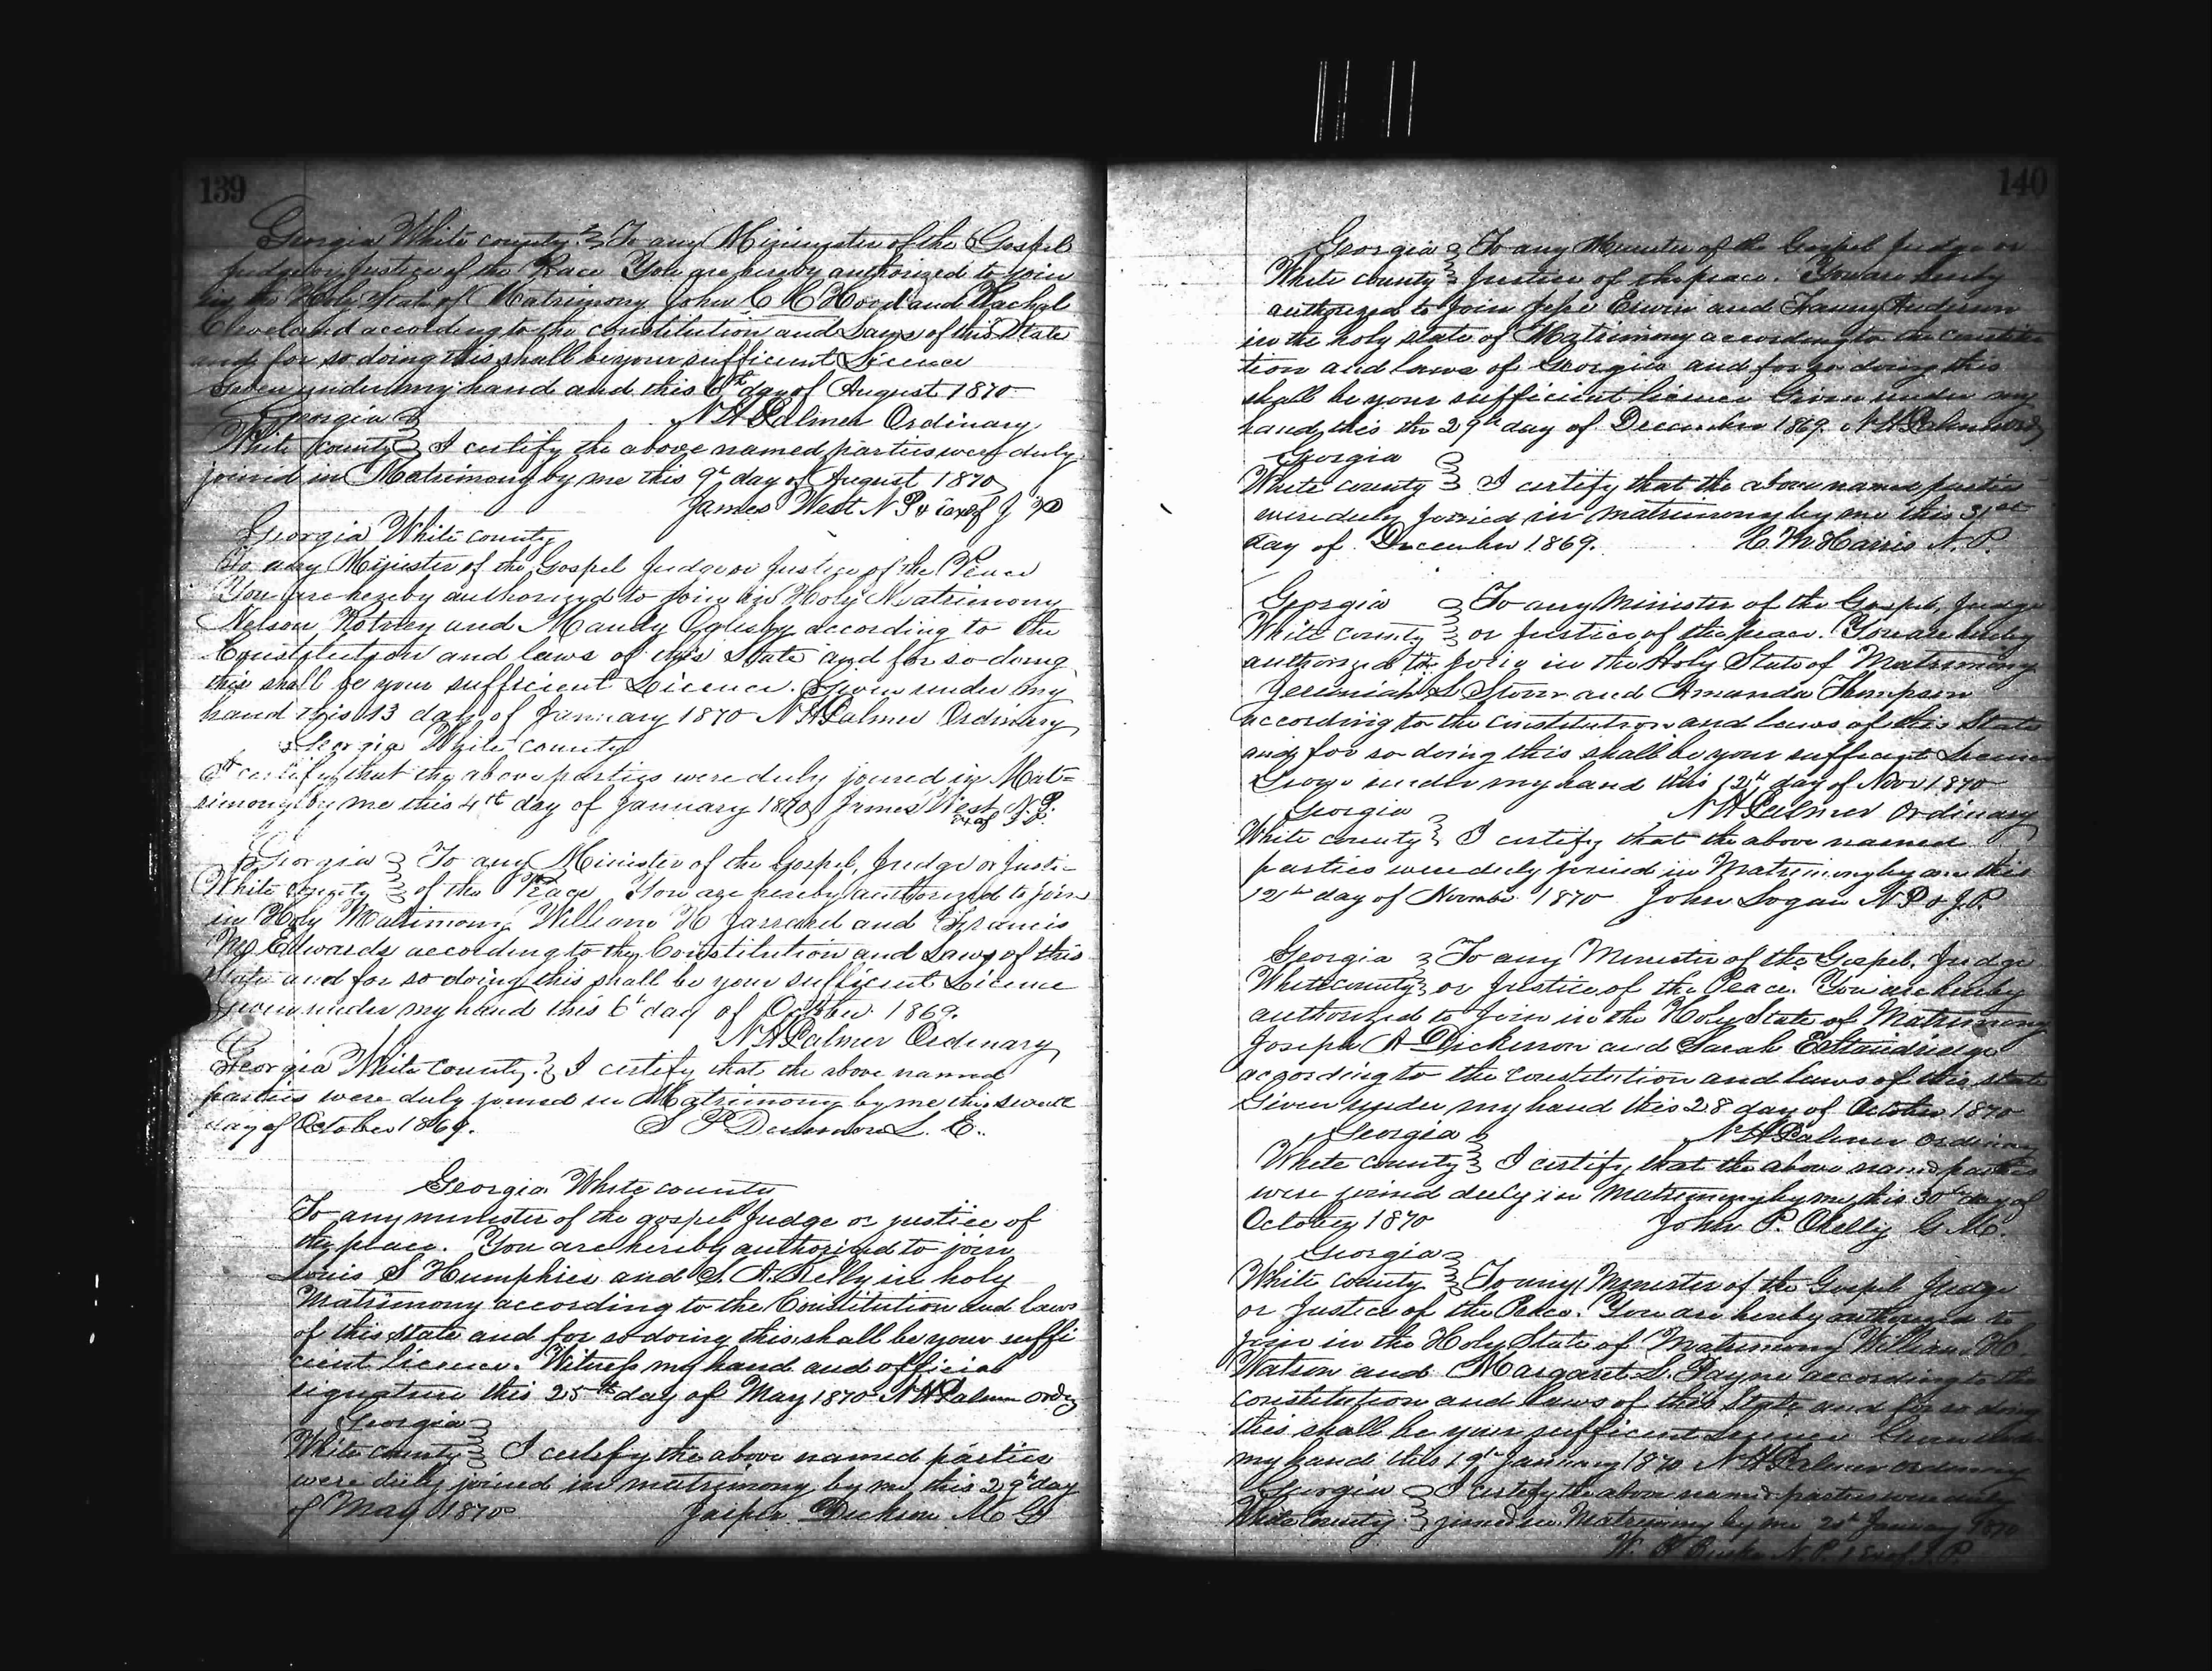 139
Georgia White county To any Mininyster of the Gospel
Judge or Justice of the Peace You are hereby authorized to join
in the Holy State of Matrimony John C M Hood and Rachel
Cleveland according to the constitution and Laws of this State
and for so doing this shall be your sufficient Licence
Given under my hand and this 6th day of August 1870
Georgia N H Palmer Ordinary
White County I certify the above named parties were duly
joined in Matrimony by me this 9th day of August 1870
James West N P & exof J P
Georgia White county
To any Minister of the Gospel Judge or Justice of the Peace
You are hereby authorized to join in Holy Matrimony
Nelson and Mandy Oglesby according to the
Constitution and laws of this State and for so doing
this shall be your sufficient Licence. Given under my
hand this 13 day of January 1870 N H Palmer Ordinary
Georgia White county
I certify that the above parties were duly joined in Mat=
rimony by me this 4th day of January 1870 James West N. P.
exof J. P.
Georgia To any Minister of the Gospel, Judge or Justi-
White county of the Peace You are hereby authorized to join
in Holy Matrimony William H Jarrard and Francis
M Edwards according to the Constitution and Laws of this
State and for so doing this shall be your sufficient Licence
Given under my hand this 6th day of October 1869.
N H Palmer Ordinary
Georgia White County. I certify that the above named
parties were duly joined in Matrimony by me this
day of October 1869. S P L. E.
Georgia White county
To any minister of the gospel judge or justice of
the place. You are hereby authorized to join
Louis S Humphries and S. A. Kelly in holy
Matrimony according to the Constitution and laws
of this state and for so doing this shall be your suffi
cient licence. Witness my hand and official
signature this 25th day of May 1870 N H Palmer Ordy
Georgia
White county I certify the above named parties
were duly joined in matrimony by me this 29th day
of May 1870 Jasper Dickson M G
140
Georgia To any Minister of the Gospel Judge or
White county Justice of the peace. You are hereby
authorized to join Jepe Erwin and Fanny Anderson
in the holy state of Matrimony according to the constitu
tion and laws of Georgia and for so doing this
shall be your sufficient licence Given under my
hand this the 29th day of December 1869. N H Palmer Ordy
Georgia
White county I certify that the above named parties
were duly joined in matrimony by me this 31st
day of December 1869. H. M. Harris N. P.
Georgia To any Minister of the Gospel, Judge
White county or Justice of the peace. You are hereby
authorized to join in the Holy State of Matrimony
Jeremiah S Stover and Amanda Thompson
according to the constitution and laws of this State
and for so doing this shall be your sufficient Licence
Given under my hand this 12th day of Nov 1870
Georgia N H Palmer Ordinary
White county I certify that the above named
parties were duly joined in Matrimony by me this
12th day of November 1870 John Logan N P & J. P.
Georgia To any Minister of the Gospel. Judge
White county or Justice of the Peace. You are hereby
authorized to join in the Holy State of Matrimony
Joseph A Dickinson and Sarah E Standridge
according to the constitution and laws of this state
Given under my hand this 28 day of October 1870
Georgia N H Palmer Ordinary
White county I certify that the above named parties
were joined duly in matrimony by me this 30th day of
October 1870 John P. Okelly G. M.
Georgia
White county To any Minister of the Gospel Judge
or Justice of the Peace. You are hereby authorized to
join in the Holy State of Matrimony William H
Watson and Margaret L. Payne according to the
constitution and laws of this State and for so doing
this shall be your sufficient Licence Given under
my hand this 19th January 1870 N H Palmer Ordinary
Georgia I certify the above named parties were duly
White County joined in Matrimony by me January 1870
W. N. P. & Exof. J. P.